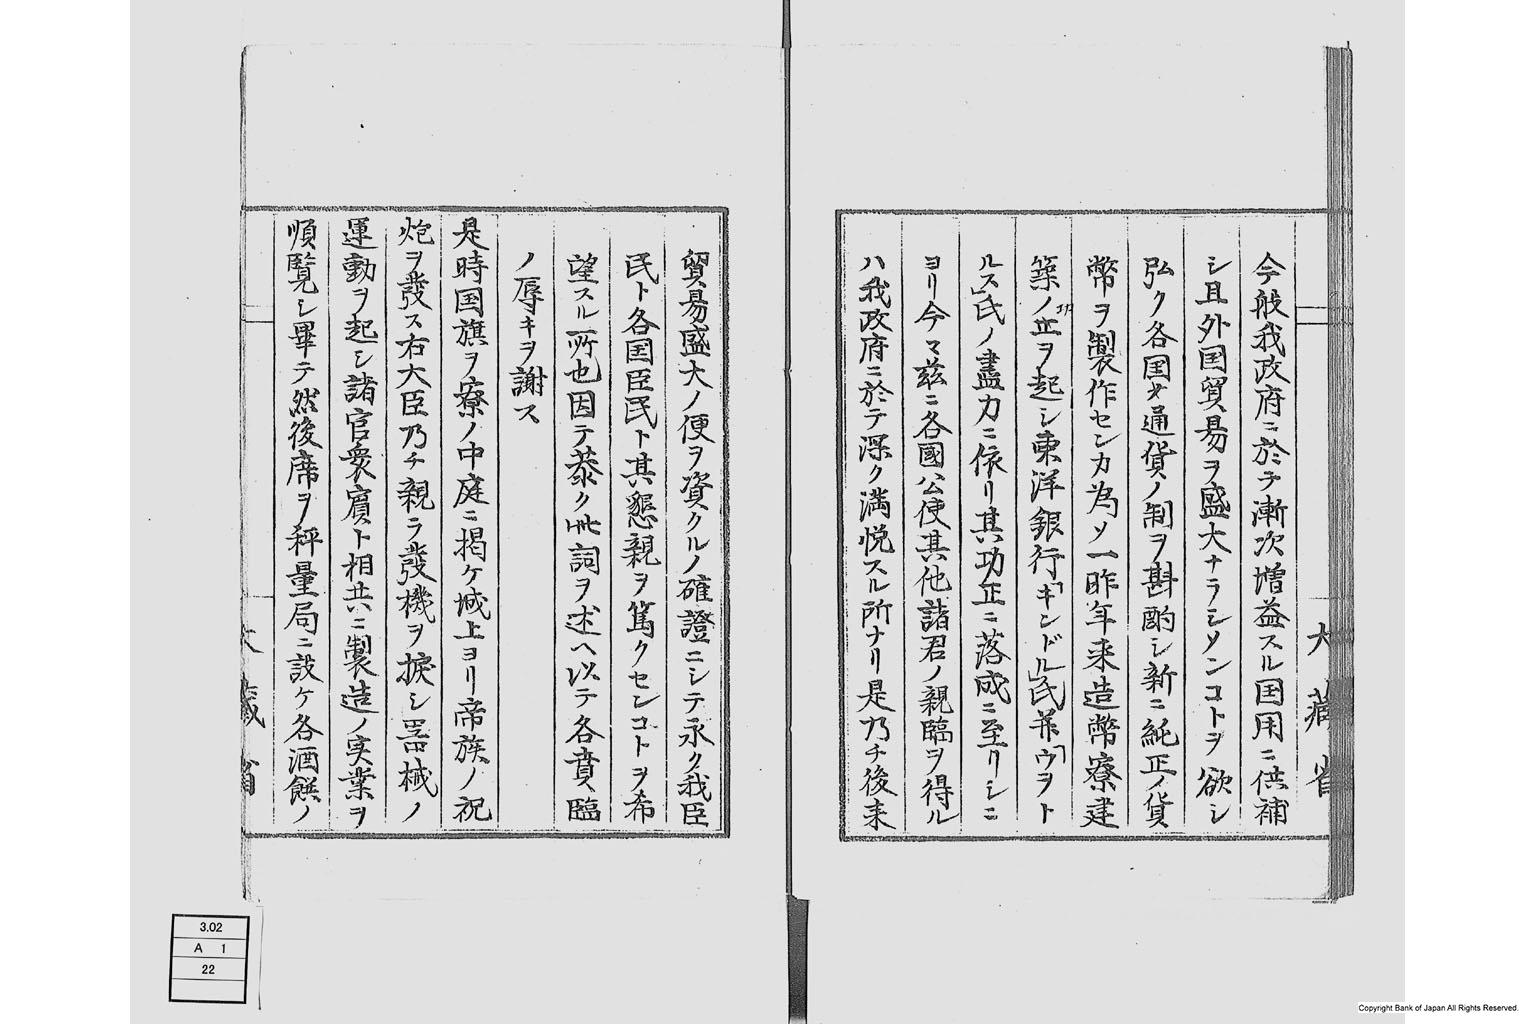 今般我政府ニ於テ漸次増益スル国用ニ供補
シ且外国貿易ヲ盛大ナラシメンコトヲ欲シ
弘ク各国ノ通貨ノ制ヲ斟酌シ新ニ純正ノ貨
幣ヲ製作センカ為メ一昨年来造幣寮建
築ノ功ヲ起シ東洋銀行「キンドル」氏并「ウヲト
ルス」氏ノ盡力ニ依リ其功正ニ落成ニ至リシニ
ヨリ今マ玆ニ各國公使其他諸君ノ親臨ヲ得ル
ハ我政府ニ於テ深ク満悦スル所ナリ是乃チ後来
大藏省
貿易盛大ノ便ヲ資クルノ確證ニシテ永ク我臣
民ト各国臣民ト其懇親ヲ篤クセンコトヲ希
望スル所也因テ恭ク此詞ヲ述ヘ以テ各賁臨
ノ辱キヲ謝ス
是時国旗ヲ寮ノ中庭ニ掲ケ城上ヨリ帝族ノ祝
炮ヲ發ス右大臣乃チ親ラ發機ヲ捩シ器械ノ
運動ヲ起シ諸官衆賓ト相共ニ製造ノ実業ヲ
順覧シ畢テ然後席ヲ秤量局ニ設ケ各酒饌ノ
大藏省
3.02
A 1
22
Copyright Bank of Japan All Rights Reserved.